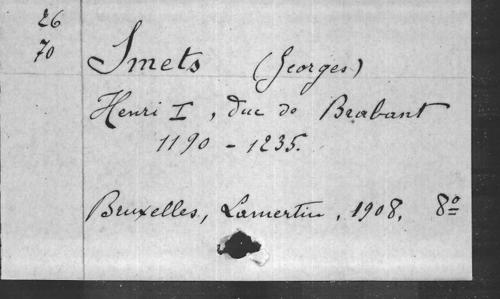 26
70
Smets (Georges)
Henri I, duc de Brabant
1190 - 1235.
Bruxelles, Lamertin, 1908, 8º